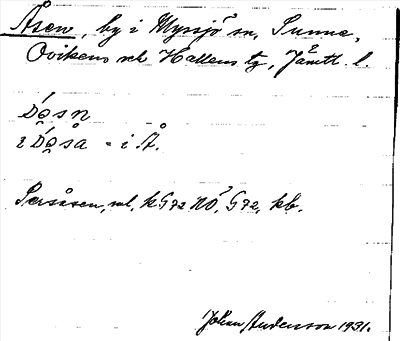 Åsen, by i Myssjö sn, Sunne,
Ovikens och Hallens tg, Jämtl. l.
i = i Å.
Persåsen, ml, k G72 NO, G72, kb.
Johan Anderson 1931.